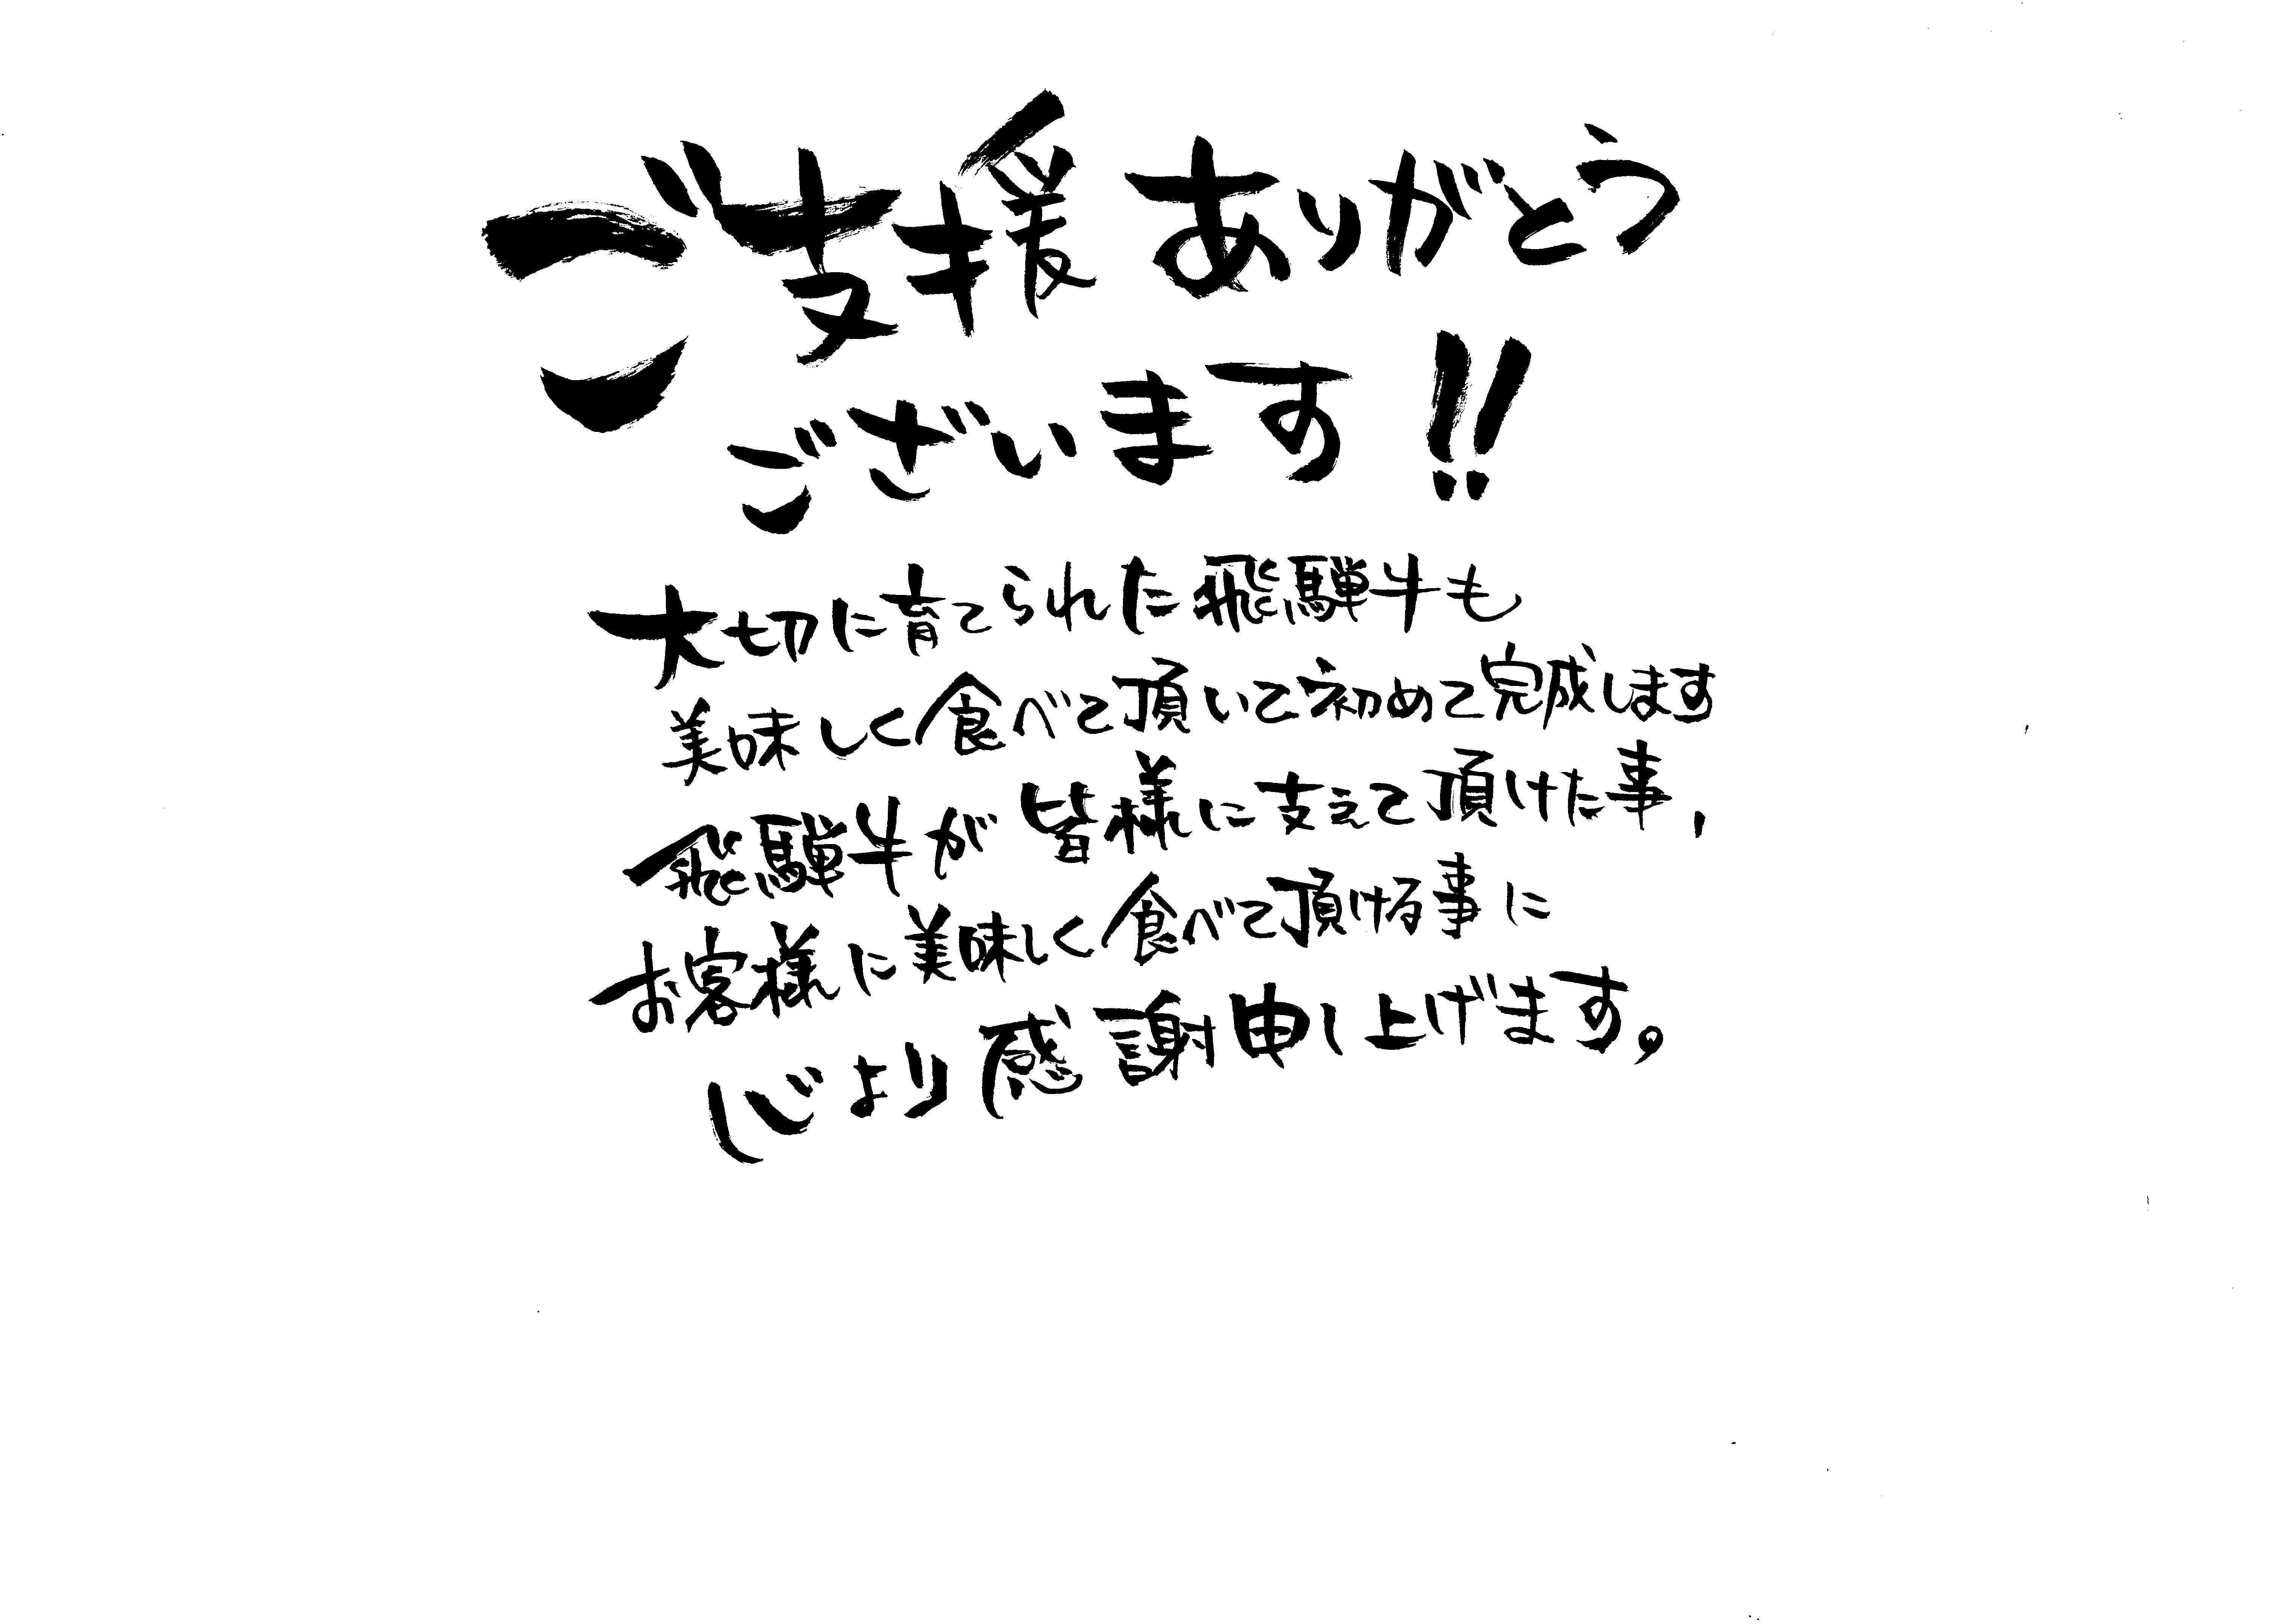 ご支援ありがとう
ございます!!
大切に育てられた飛騨牛も
美味しく食べて頂いて初めて完成します
飛騨牛が皆様に支えて頂けた事、
お客様に美味しく食べて頂ける事に
心より感謝申し上げます。